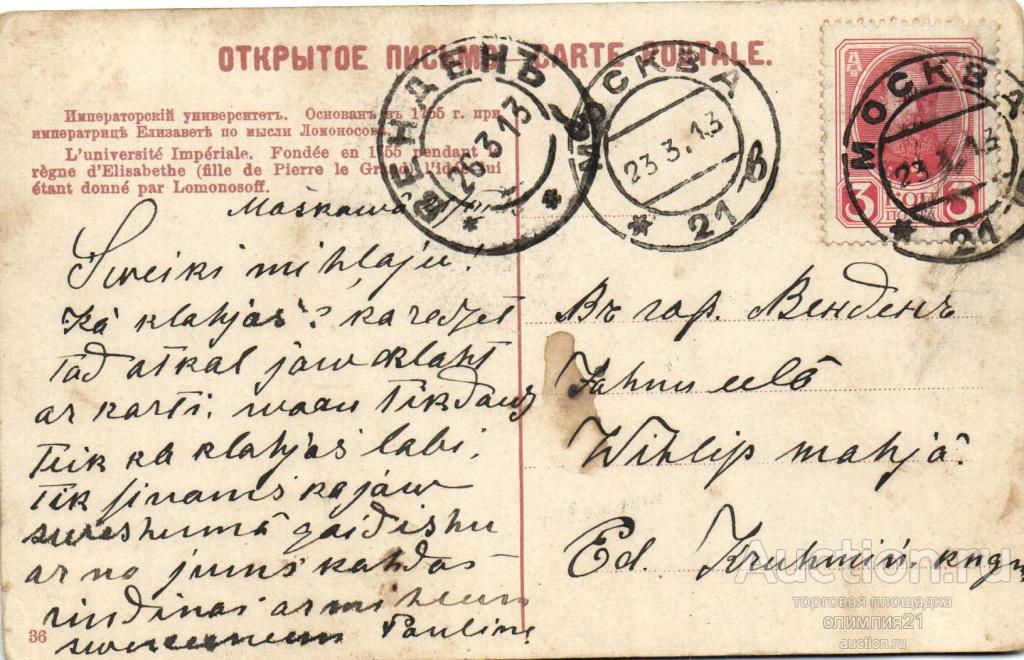 ОТКРЫТОЕ ПИСЬМО — CARTE POSTALE.
Императорскій университетъ. Основанъ въ 1755 г. при
императрицѣ Елизаветѣ по мысли Ломоносова.
L'université Impériale. Fondée en 1755 pendant
règne d'Elisabethe (fille de Pierre le Grand) l'idée
étant donné par Lomonosoff.
ВЕНДЕНЪ
26 3 13
МОСКВА
23.3.13
21
в
МОСКВА
23.3.13
21
3 КОП 3
Maskawa
Sweiki mihlaju!
Kà klahjas? ka redzet
tad atkal
ar karti.
Teik ka klahjas labi,
tik
gaidishu
ar no jums kahdas
rindinas ar
Pauline
Въ гор. Венденъ
Jahnu eelâ
Wihlip mahjâ.
Ed. Kruhmiń. kng
36
Auction.ru
торговая площадка
олимпия21
auction.ru